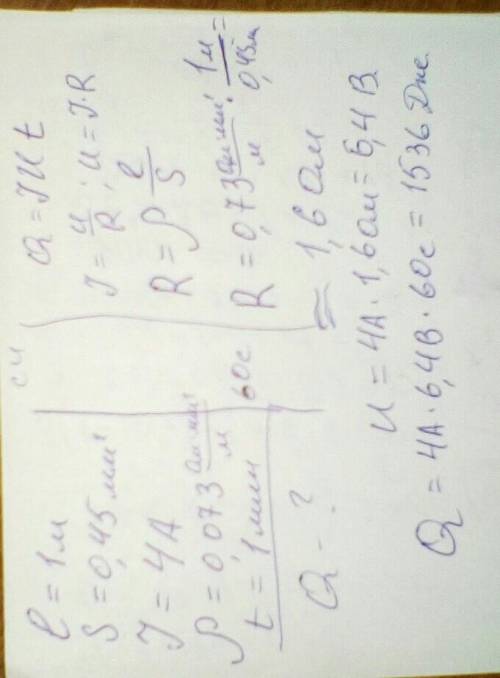 l = 1м
S = 0,45 мм²
J = 4А
ρ = 0,073 Ом·мм²/м
t = 1 мин
Q - ?
СИ
60с
Q = JUt
J = U/R ; U = J·R
R = ρ l/S
R = 0,73 Ом·мм²/м · 1м/0,45м =
= 1,6 Ом
U = 4А · 1,6 Ом = 6,4 В
Q = 4А · 6,4В · 60с = 1536 Дж.